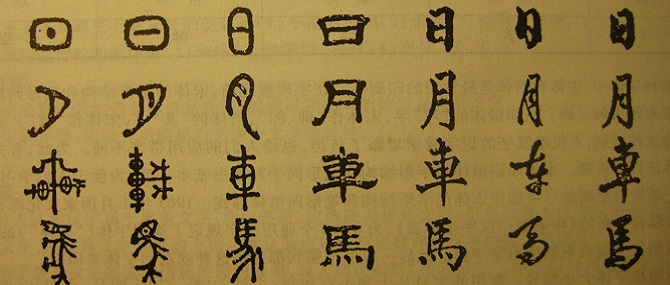 日 日 日 日 日 日 日
月 月 月 月 月 月 月
車 車 車 車 車 车 車
馬 馬 馬 馬 馬 马 馬